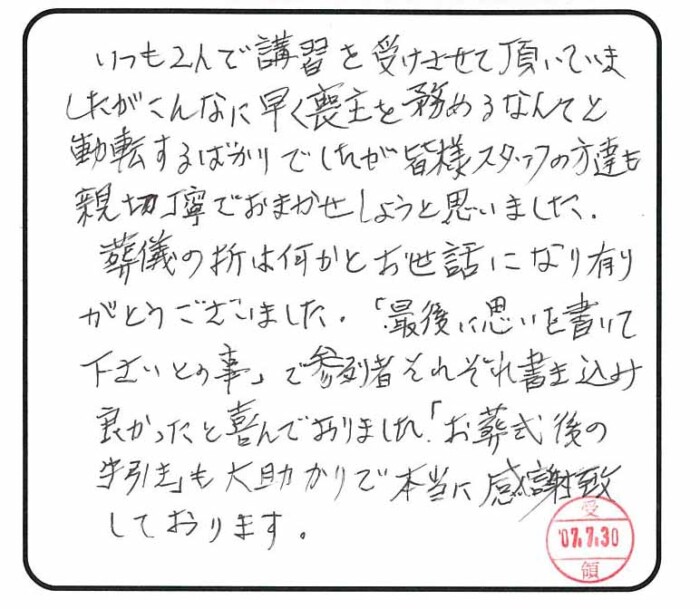 いつも2人で講習を受けさせて頂いていま
したがこんなに早く喪主を務めるなんてと
動転するばかりでしたが皆様スタッフの方達も
親切丁寧でおまかせしようと思いました.
葬儀の折は何かとお世話になり有り
がとうございました.「最後に思いを書いて
下さいとの事」で参列者それぞれ書き込み
良かったと喜んでおりました「お葬式後の
手引き」も大助かりで本当に感謝致
しております。
受
'07.7.30
領